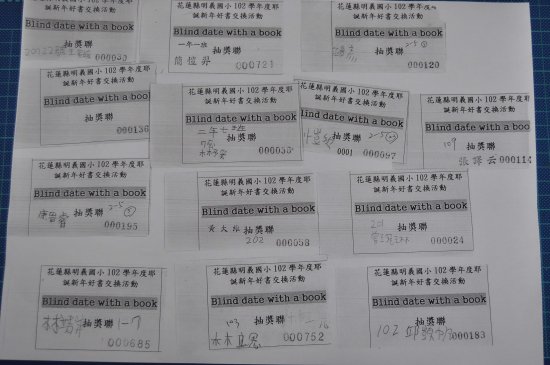 Blind date with a book
抽獎聯
000033
花蓮縣明義國小 102 學年度耶
誕新年好書交換活動
Blind date with a book
抽獎聯
一年一班
000721
誕新年好書交換活動
Blind date with a book
抽獎聯
2-5
000120
花蓮縣明義國小 102 學年度耶
誕新年好書交換活動
Blind date with a book
抽獎聯
000136
花蓮縣明義國小 102 學年度耶
誕新年好書交換活動
Blind date with a book
抽獎聯
花蓮縣明義國小 102 學年度耶
誕新年好書交換活動
Blind date with a book
抽獎聯
2-5
0001
花蓮縣明義國小 102 學年度耶
誕新年好書交換活動
Blind date with a book
抽獎聯
109
000114
花蓮縣明義國小 102 學年度耶
誕新年好書交換活動
Blind date with a book
抽獎聯
2-5
000195
花蓮縣明義國小 102 學年度耶
誕新年好書交換活動
Blind date with a book
抽獎聯
202
000053
花蓮縣明義國小 102 學年度耶
誕新年好書交換活動
Blind date with a book
抽獎聯
201
000024
花蓮縣明義國小 102 學年度耶
誕新年好書交換活動
Blind date with a book
抽獎聯
1-7
000685
花蓮縣明義國小 102 學年度耶
誕新年好書交換活動
Blind date with a book
抽獎聯
103
000752
花蓮縣明義國小 102 學年度耶
誕新年好書交換活動
Blind date with a book
抽獎聯
102
000183